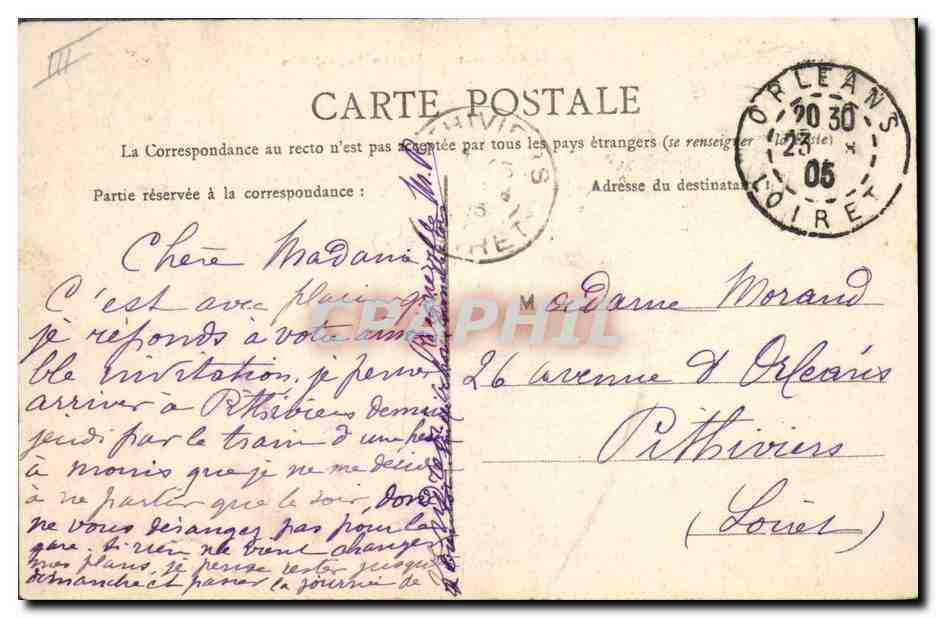 III
CARTE POSTALE
La Correspondance au recto n'est pas acceptée par tous les pays étrangers (se renseigner à la Poste)
Partie réservée à la correspondance :
Adresse du destinataire :
ORLEANS
20 30
23
05
LOIRET
PITHIVIERS
LOIRET
CPAPHIL
Chère Madame
C'est avec plaisir que
je réponds à votre aima
ble invitation, je pense
arriver à Pithiviers demain
jeudi par le train d'une heure
à moins que je ne me décide
à ne partir que le soir, donc
ne vous dérangez pas pour la
gare. Si rien ne vient changer
mes plans, je pense rester jusqu'à
dimanche et passer la journée de
Madame Morand
26 avenue d'Orléans
Pithiviers
(Loiret)